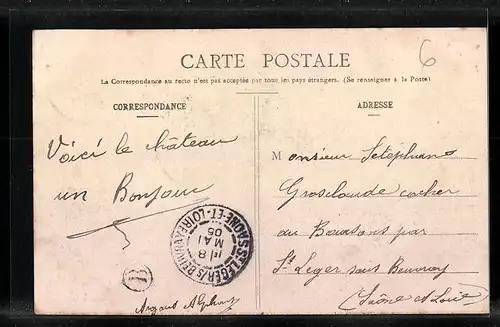 6
CARTE POSTALE
La Correspondance au recto n'est pas acceptée par tous les pays étrangers. (Se renseigner à la Poste)
CORRESPONDANCE
ADRESSE
Voici le château
un Bonjour
Monsieur
Grosclaude cocher
au par
St Leger sous Beuvray
(Saône et Loire)
8
MAI
05